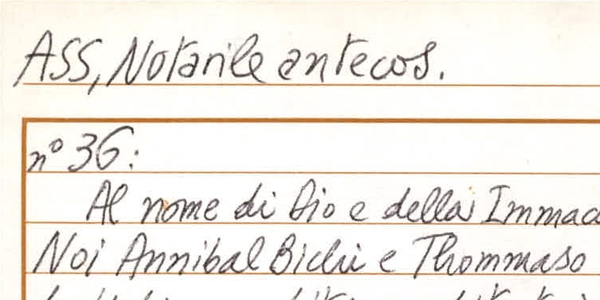 ASS, Notarile antecos.
nº 36:
Al nome di Dio e della Immac
Noi Annibal Bichi e Thommaso